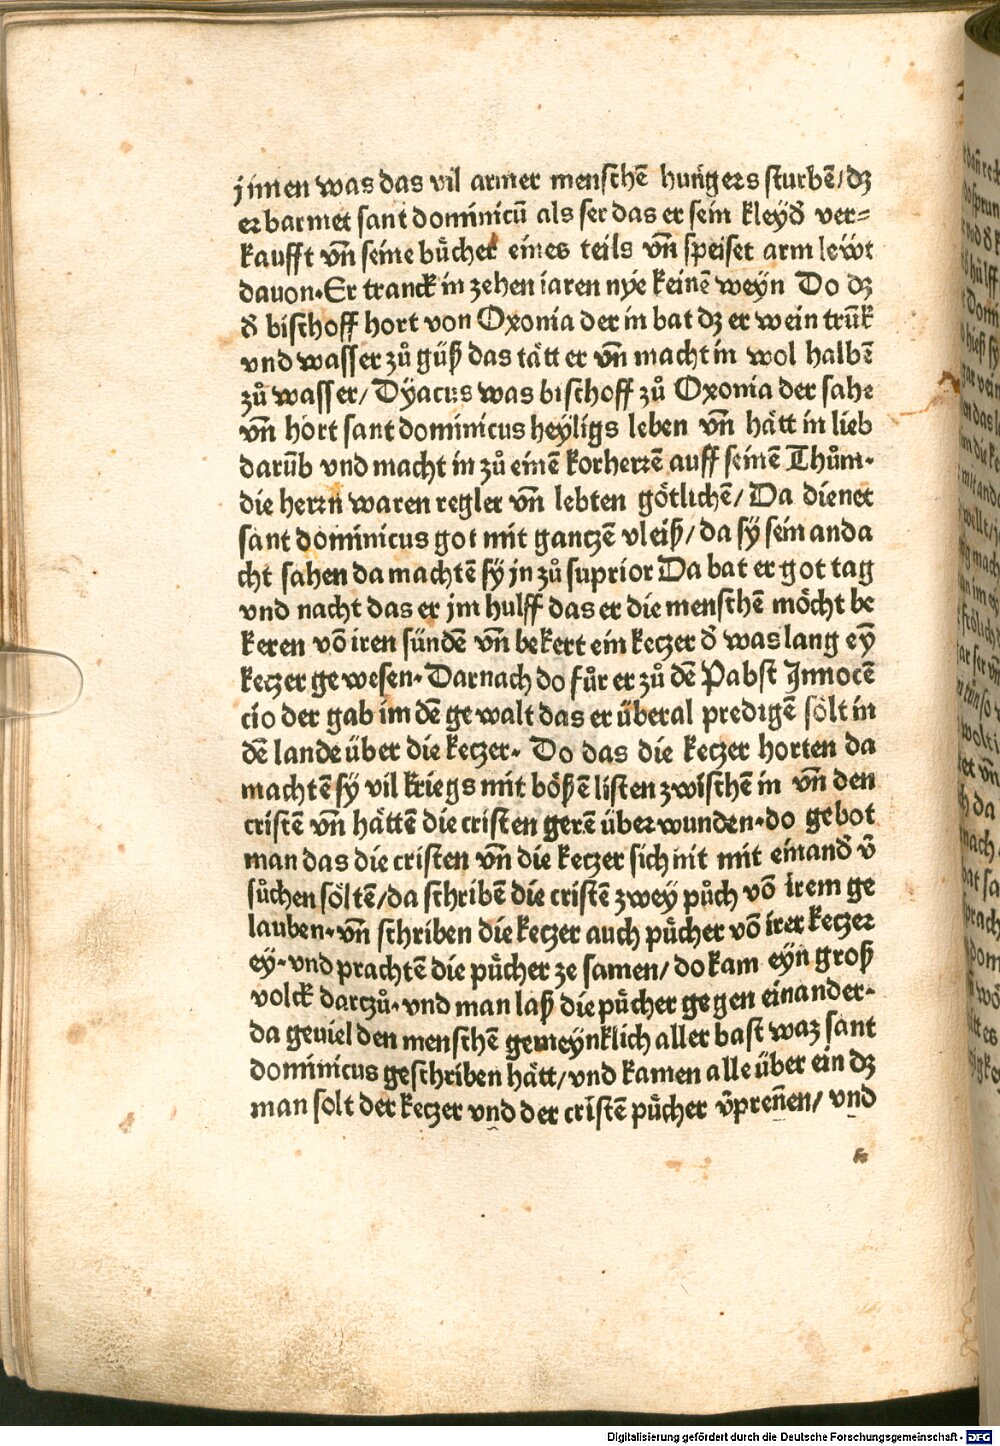 jnnen was das vil armer menschē hungers sturbē/dz
erbarmet sant dominicū als ser das er sein kleyd ver=
kaufft vn̄ seine bůcher eines teils vn̄ speiset arm lewt
dauon.Er tranck in zehen iaren nye keinē weyn Do dz
đ bischoff hort von Oxonia der in bat dz er wein trūk
vnd wasser zů güß das tätt er vn̄ macht in wol halbē
zů wasser/ Dyacus was bischoff zů Oxonia der sahe
vn̄ hort sant dominicus heyligs leben vn̄ hätt in lieb
darūb vnd macht in zů einē korherrē auff seinē Thům.
die herrn waren regler vn̄ lebten götlichē/ Da dienet
sant dominicus got mit gantzē vleiß/ da sy sein anda
cht sahen da machtē sy jn zů suprior Da bat er got tag
vnd nacht das er jm hulff das er die menschē möcht be
keren vō iren sündē vn̄ bekert ein ketzer đ was lang eȳ
ketzer gewesen. Darnach do fůr er zů dē Pabst Jnnocē
cio der gab im dē gewalt das er überal predigē sölt in
dē lande über die ketzer. Do das die ketzer horten da
machtē sy vil kriegs mit bößē listen zwischē in vn̄ den
cristē vn̄ hättē die cristen gerē überwunden.do gebot
man das die cristen vn̄ die ketzer sich nit mit einanđ v̄
sůchen söltē/da schribē die cristē zwey půch vō irem ge
lauben.vn̄ schriben die ketzer auch půcher vō irer ketzer
ey.vnd prachtē die půcher ze samen/ do kam eyn groß
volck darczů.vnd man laß die půcher gegen einander.
da geuiel den menschē gemeynklich aller bast waz sant
dominicus geschriben hätt/vnd kamen alle über ein dz
man solt der ketzer vnd der cristē půcher v̄pren̄en/ vnd
Digitalisierung gefördert durch die Deutsche Forschungsgemeinschaft - DFG